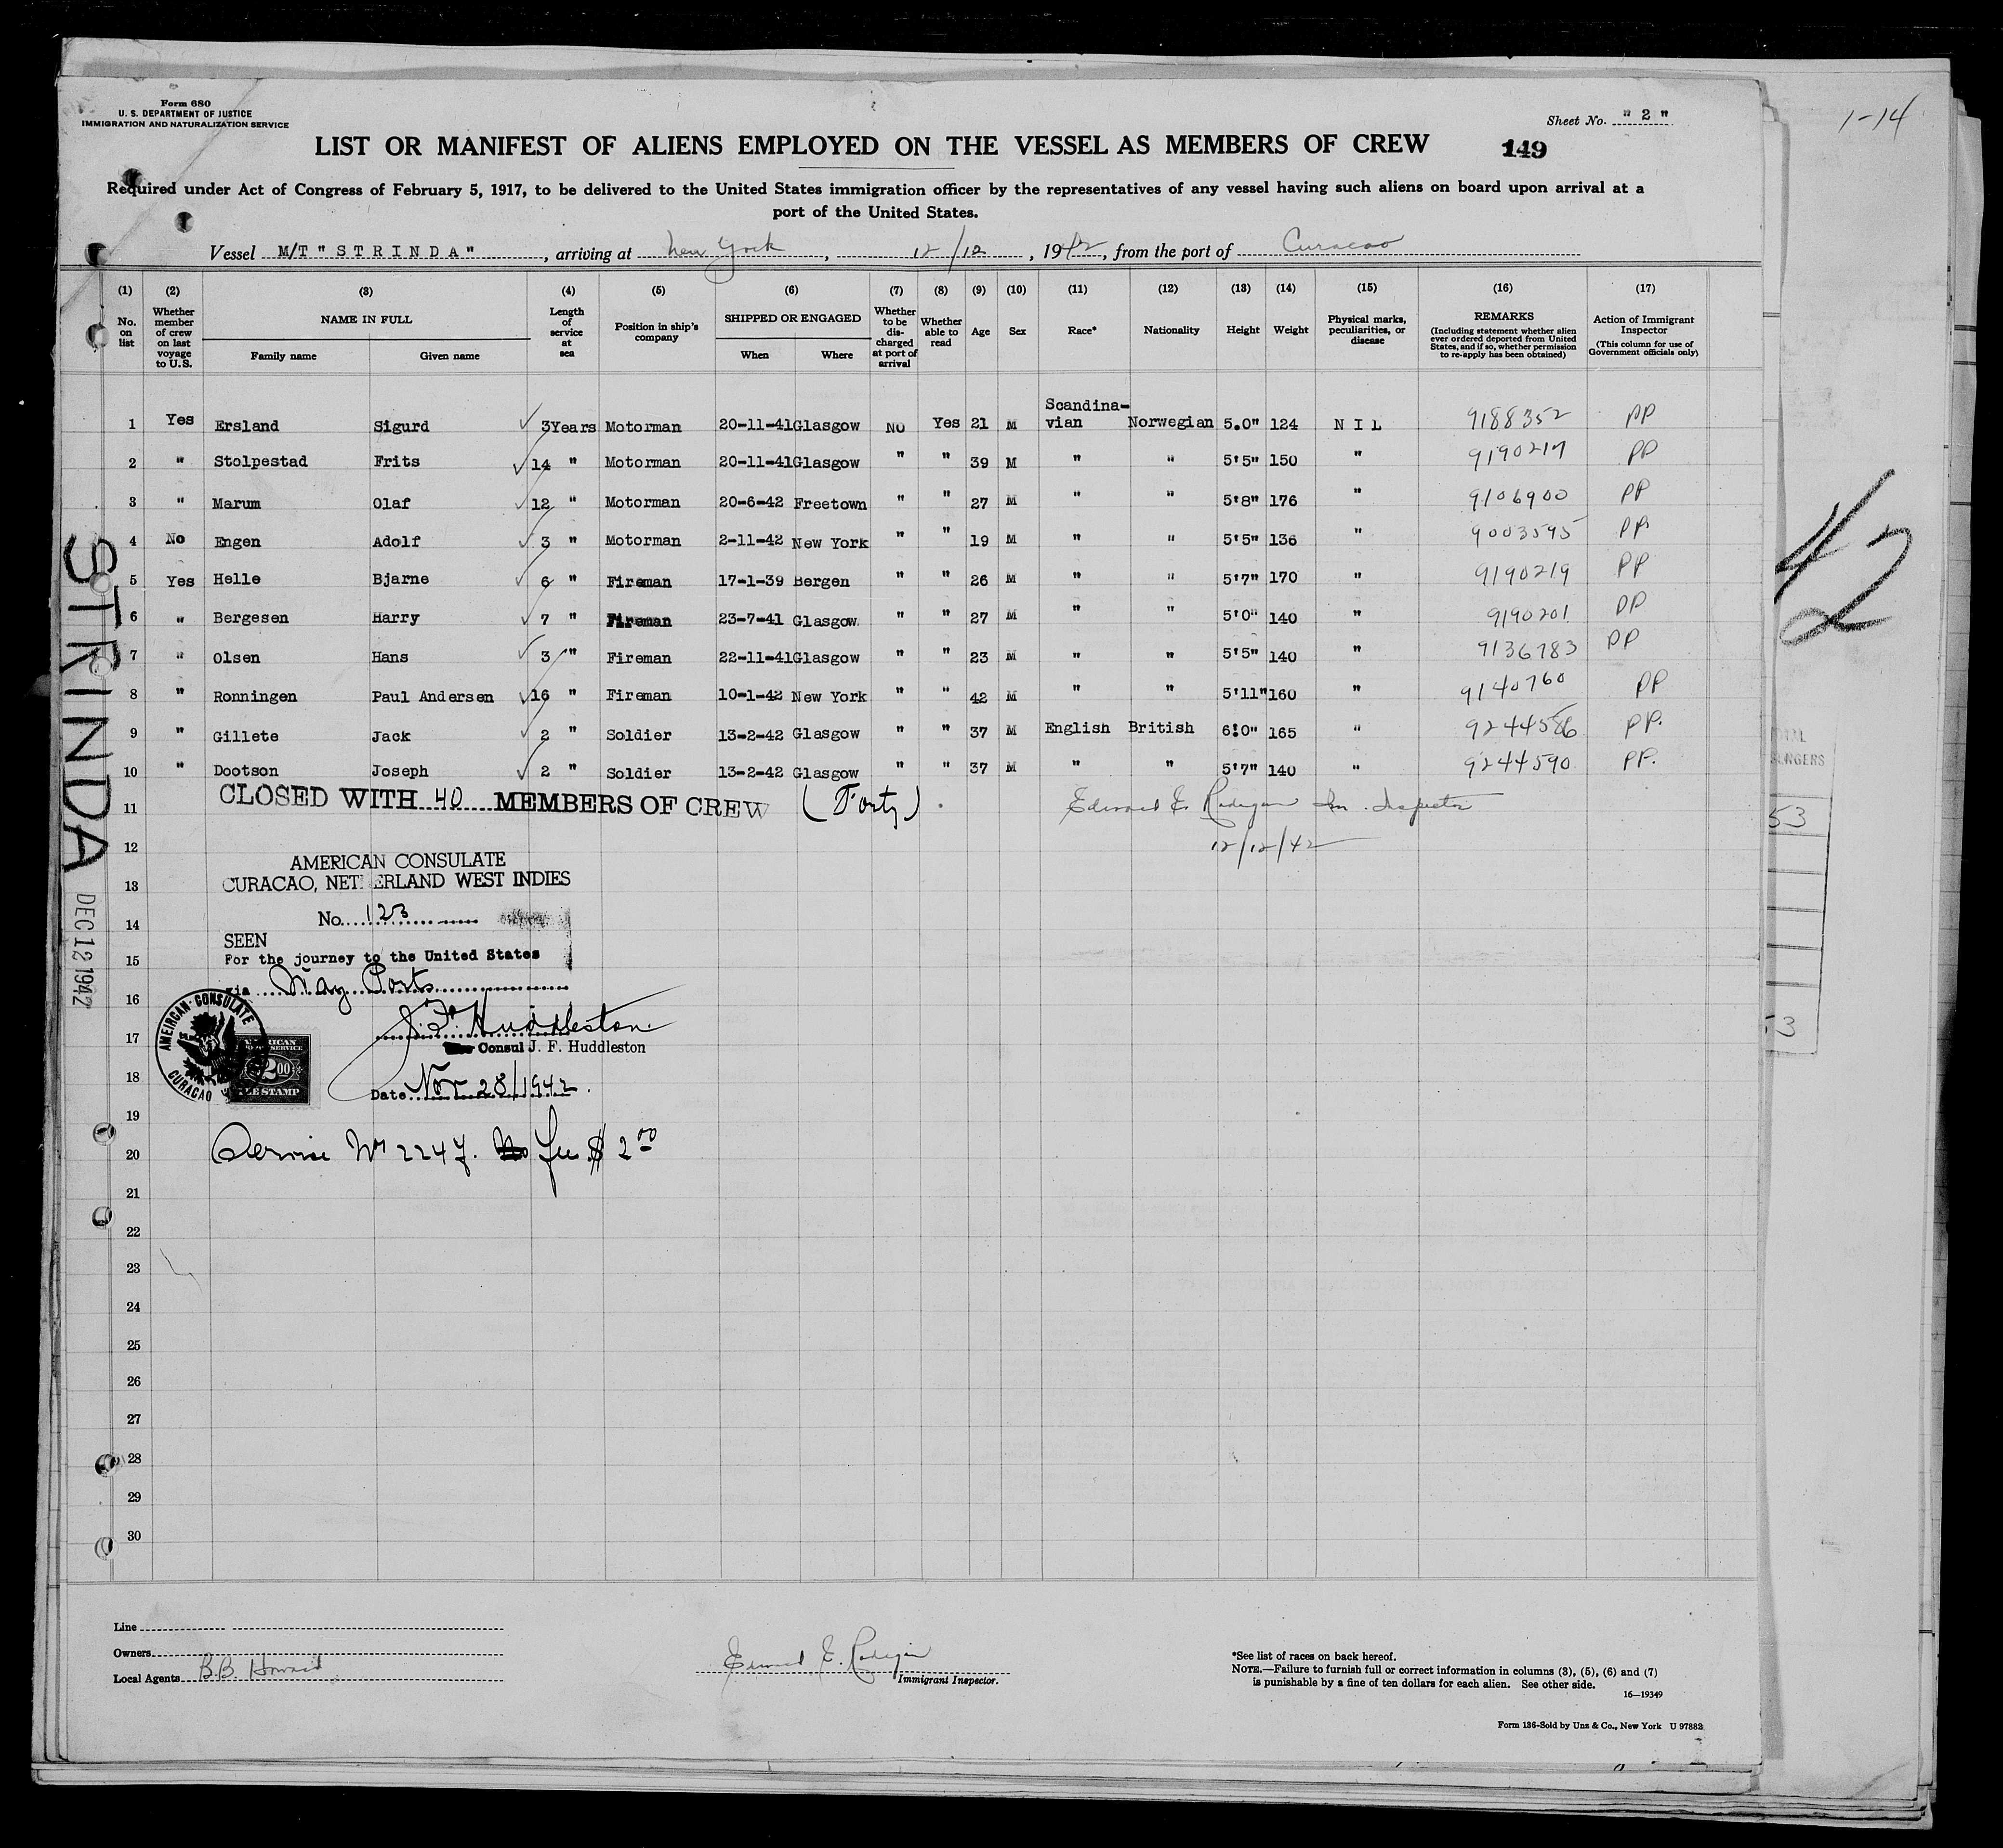 1-14
Form 680
U. S. DEPARTMENT OF JUSTICE
IMMIGRATION AND NATURALIZATION SERVICE
Sheet No. "2"
LIST OR MANIFEST OF ALIENS EMPLOYED ON THE VESSEL AS MEMBERS OF CREW 149
Required under Act of Congress of February 5, 1917, to be delivered to the United States immigration officer by the representatives of any vessel having such aliens on board upon arrival at a
port of the United States.
Vessel M/T "STRINDA", arriving at New York, 12/12, 1942, from the port of Curacao
(1) No. on list
(2) Whether member of crew on last voyage to U.S.
(3) NAME IN FULL Family name Given name
(4) Length of service at sea
(5) Position in ship's company
(6) SHIPPED OR ENGAGED When Where
(7) Whether to be dis-charged at port of arrival
(8) Whether able to read
(9) Age
(10) Sex
(11) Race*
(12) Nationality
(13) Height
(14) Weight
(15) Physical marks, peculiarities, or disease
(16) REMARKS (Including statement whether alien ever ordered deported from United States, and if so, whether permission to re-apply has been obtained)
(17) Action of Immigrant Inspector (This column for use of Government officials only)
1 Yes Ersland Sigurd 3Years Motorman 20-11-41 Glasgow No Yes 21 M Scandina-vian Norwegian 5.0" 124 NIL 9188352 PP
2 " Stolpestad Frits 14 " Motorman 20-11-41 Glasgow " " 39 M " " 5'5" 150 " 9190217 PP
3 " Marum Olaf 12 " Motorman 20-6-42 Freetown " " 27 M " " 5'8" 176 " 9106900 PP
4 No Engen Adolf 3 " Motorman 2-11-42 New York " " 19 M " " 5'5" 136 " 9003595 PP
5 Yes Helle Bjarne 6 " Fireman 17-1-39 Bergen " " 26 M " " 5'7" 170 " 9190219 PP
6 " Bergesen Harry 7 " Fireman 23-7-41 Glasgow " " 27 M " " 5'0" 140 9190201 PP
7 " Olsen Hans 3 " Fireman 22-11-41 Glasgow " " 23 M " " 5'5" 140 " 9136783 PP
8 " Ronningen Paul Andersen 16 " Fireman 10-1-42 New York " " 42 M " " 5'11" 160 " 9140760 PP
9 " Gillete Jack 2 " Soldier 13-2-42 Glasgow " " 37 M English British 6'0" 165 " 9244586 PP.
10 " Dootson Joseph 2 " Soldier 13-2-42 Glasgow " " 37 M " " 5'7" 140 " 9244590 PP.
11 CLOSED WITH 40 MEMBERS OF CREW (Forty) Edward E. Im. Inspector
12 12/12/42
AMERICAN CONSULATE
13 CURACAO, NETHERLAND WEST INDIES
14 No. 123
SEEN
15 For the journey to the United States
16 via Way Ports
AMEIRCAN CONSULATE CURACAO
AMERICAN SERVICE $2.00 FEE STAMP
17 J. F. Huddleston
Consul J. F. Huddleston
18 Date Nov 28/1942.
19
20 Service No 2247. Fee $2.00
21
22
23
24
25
26
27
28
29
30
STRINDA
DEC 12 1942
42
53
53
Line
Owners
Local Agents B.B. Howard
Edward E.
Immigrant Inspector.
*See list of races on back hereof.
NOTE.—Failure to furnish full or correct information in columns (3), (5), (6) and (7)
is punishable by a fine of ten dollars for each alien. See other side.
16—19349
Form 136-Sold by Unz & Co., New York U 97882